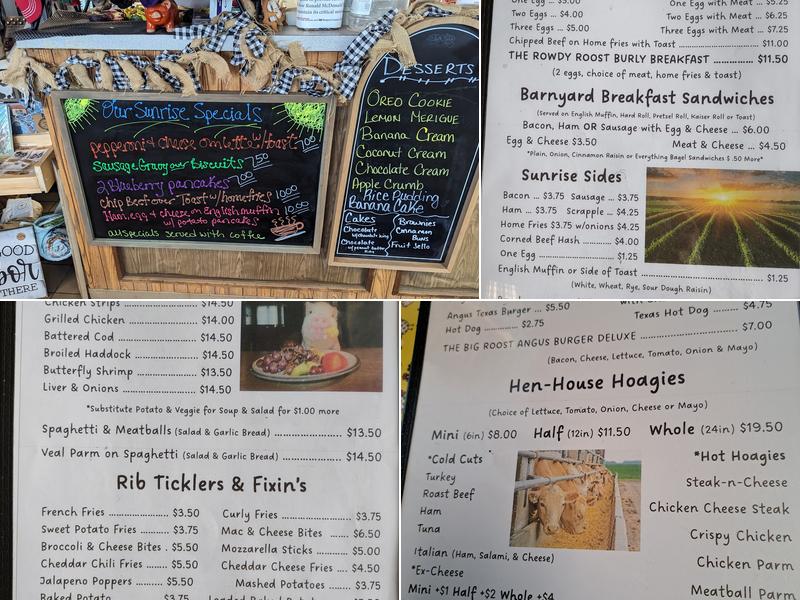 Our Sunrise Specials
pepperoni & cheese omlette w/toast 7.00
Sausage Gravy our Biscuits 7.50
2 Blueberry pancakes 7.00
chip Beef over Toast w/homefries 10.00
Ham, egg & cheese on English muffin w/ potato pancakes 10.00
All specials served with coffee
DESSERTS
OREO COOKIE
LEMON MERIGUE
Banana Cream
Coconut Cream
Chocolate Cream
Apple Crumb
Rice Pudding
Banana Cake
Cakes
Chocolate
w/chocolate icing
Chocolate
w/peanut butter icing
Brownies
Cinnamon
Buns
Fruit Jello
GOOD
THERE
One Egg ... $3.00
One Egg with Meat ... $5.25
Two Eggs ... $4.00
Two Eggs with Meat ... $6.25
Three Eggs ... $5.00
Three Eggs with Meat ... $7.25
Chipped Beef on Home fries with Toast ... $11.00
THE ROWDY ROOST BURLY BREAKFAST ... $11.50
(2 eggs, choice of meat, home fries & toast)
Barnyard Breakfast Sandwiches
(Served on English Muffin, Hard Roll, Pretzel Roll, Kaiser Roll or Toast)
Bacon, Ham OR Sausage with Egg & Cheese ... $6.00
Egg & Cheese $3.50
Meat & Cheese ... $4.50
*Plain, Onion, Cinnamon Raisin or Everything Bagel Sandwiches $ .50 More*
Sunrise Sides
Bacon ... $3.75 Sausage ... $3.75
Ham ... $3.75 Scrapple ... $4.25
Home Fries $3.75 w/onions $4.25
Corned Beef Hash ... $4.00
One Egg ... $1.25
English Muffin or Side of Toast ... $1.25
(White, Wheat, Rye, Sour Dough Raisin)
Chicken Strips ... $14.50
Grilled Chicken ... $14.00
Battered Cod ... $14.50
Broiled Haddock ... $14.50
Butterfly Shrimp ... $13.50
Liver & Onions ... $14.50
*Substitute Potato & Veggie for Soup & Salad for $1.00 more
Spaghetti & Meatballs (Salad & Garlic Bread) ... $13.50
Veal Parm on Spaghetti (Salad & Garlic Bread) ... $14.50
Rib Ticklers & Fixin's
French Fries ... $3.50
Sweet Potato Fries ... $3.75
Broccoli & Cheese Bites . $5.50
Cheddar Chili Fries ... $5.50
Jalapeno Poppers ... $5.50
Baked Potato ... $3.75
Curly Fries ... $3.75
Mac & Cheese Bites ... $6.50
Mozzarella Sticks ... $5.00
Cheddar Cheese Fries ... $4.50
Mashed Potatoes ... $3.75
Angus Texas Burger ... $5.50
Hot Dog ... $2.75
Texas Hot Dog ... $4.75
THE BIG ROOST ANGUS BURGER DELUXE ... $7.00
(Bacon, Cheese, Lettuce, Tomato, Onion & Mayo)
Hen-House Hoagies
(Choice of Lettuce, Tomato, Onion, Cheese or Mayo)
Mini (6in) $8.00 Half (12in) $11.50 Whole (24in) $19.50
*Cold Cuts
Turkey
Roast Beef
Ham
Tuna
Italian (Ham, Salami, & Cheese)
*Ex-Cheese
Mini +$1 Half +$2 Whole +$4
*Hot Hoagies
Steak-n-Cheese
Chicken Cheese Steak
Crispy Chicken
Chicken Parm
Meatball Parm